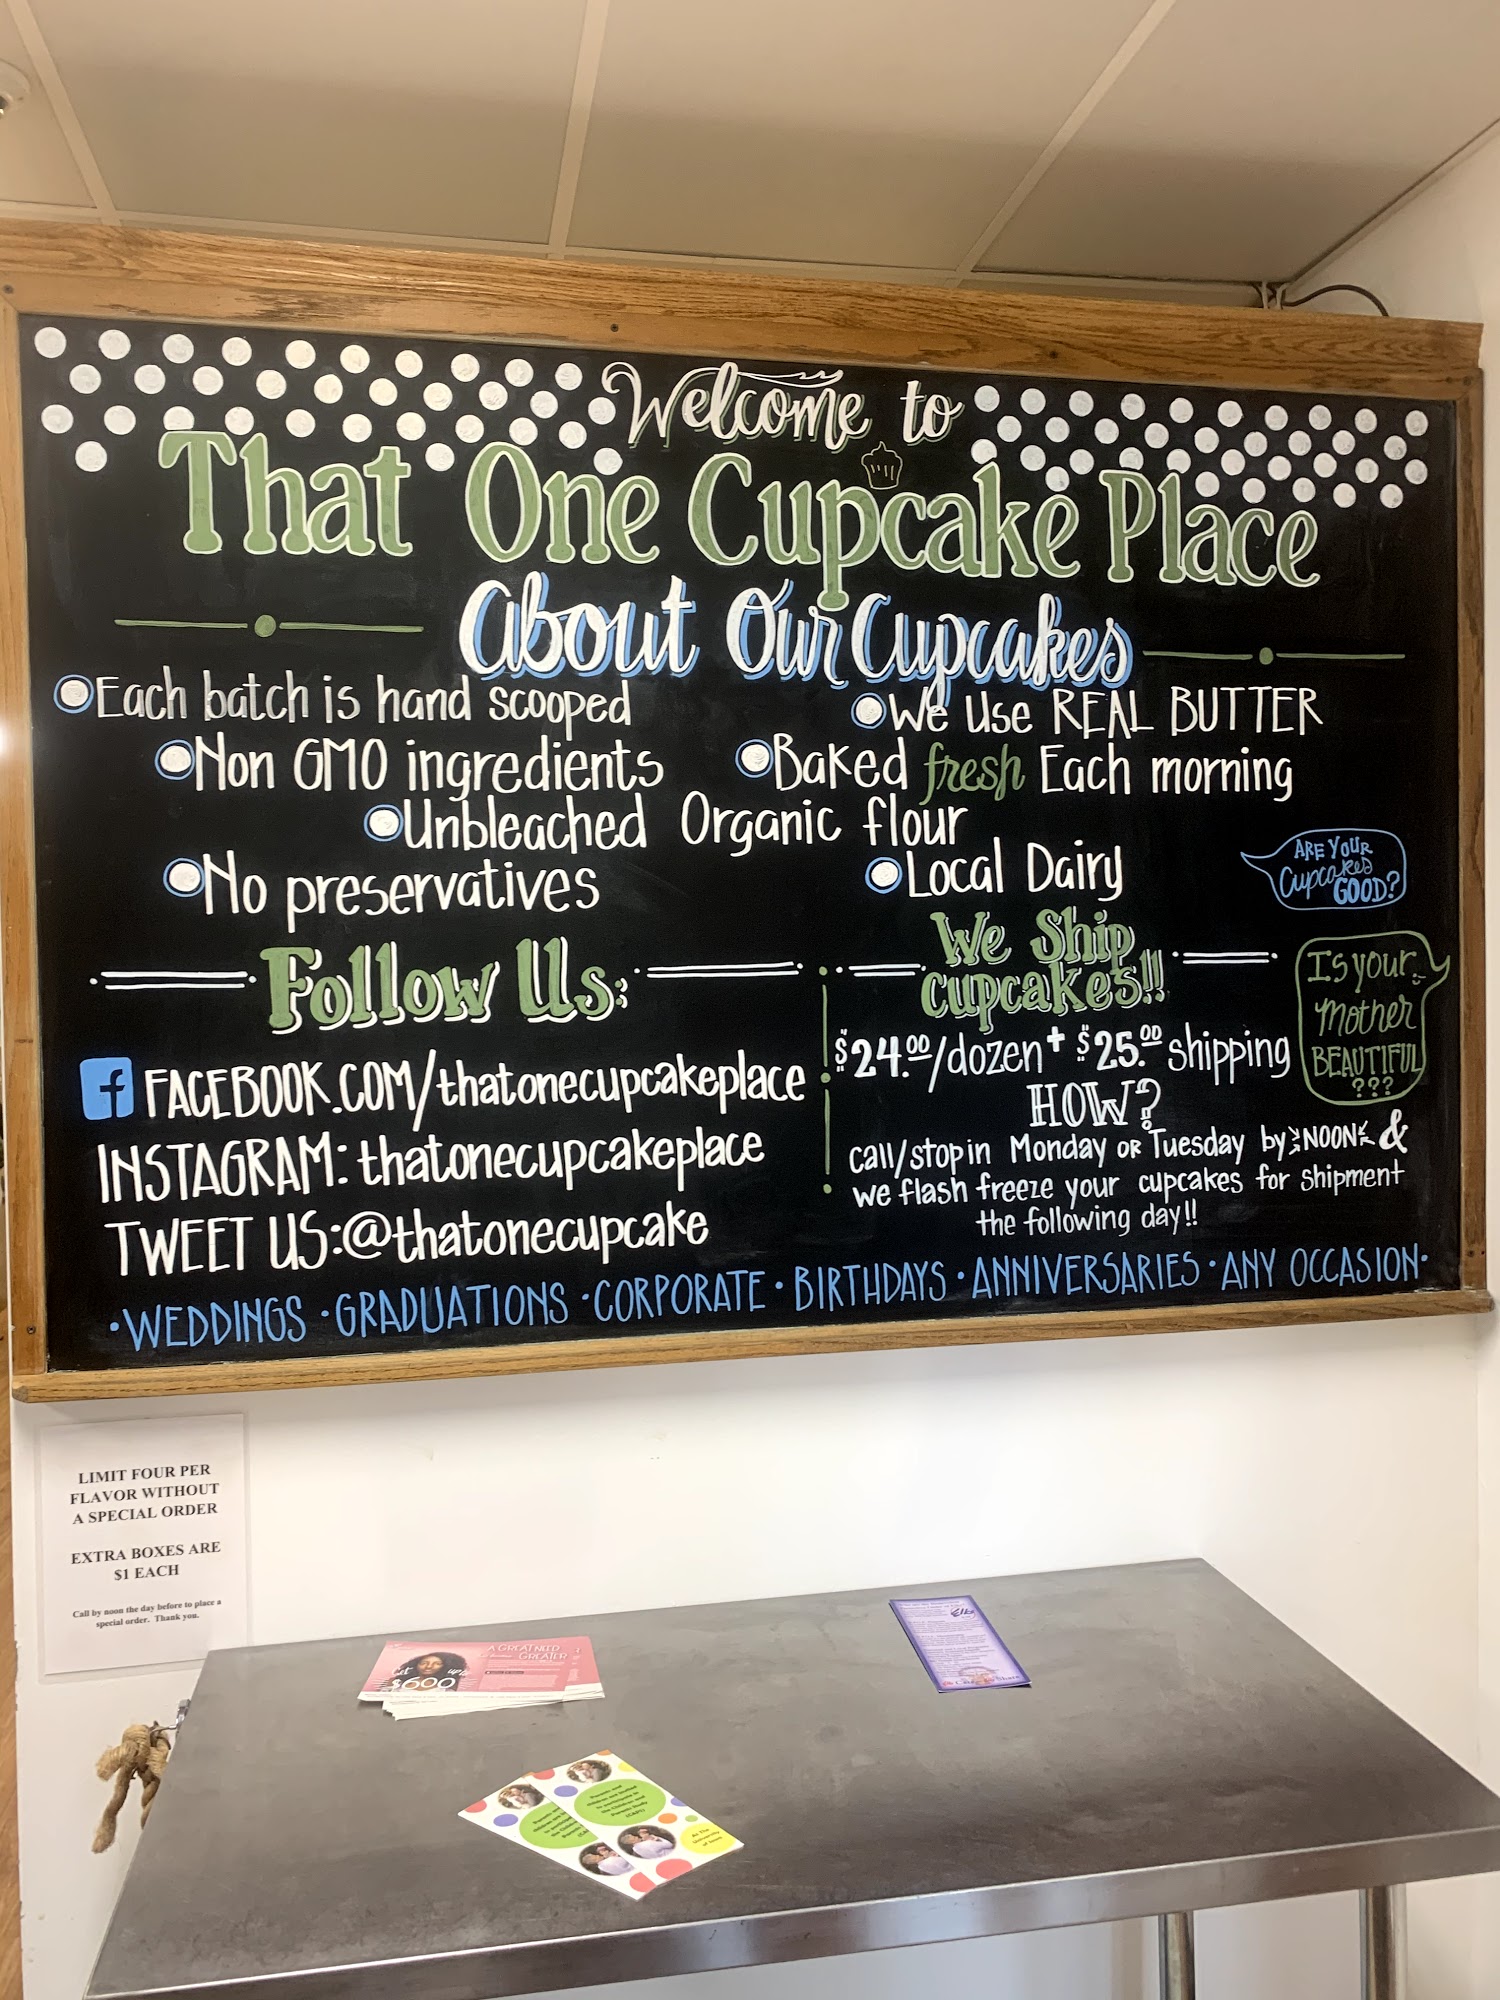 Welcome to
That One Cupcake Place
About Our Cupcakes
Each batch is hand scooped
We use REAL BUTTER
Non GMO ingredients
Baked fresh Each morning
Unbleached Organic flour
No preservatives
Local Dairy
ARE YOUR
Cupcakes
GOOD?
Is your
mother
BEAUTIFUL
???
Follow Us:
f FACEBOOK.COM/thatonecupcakeplace
INSTAGRAM: thatonecupcakeplace
TWEET US:@thatonecupcake
We Ship
cupcakes!!
$24.00/dozen + $25.00 shipping
HOW?
call/stop in Monday OR Tuesday by NOON &
we flash freeze your cupcakes for shipment
the following day!!
•WEDDINGS •GRADUATIONS •CORPORATE •BIRTHDAYS •ANNIVERSARIES •ANY OCCASION•
LIMIT FOUR PER
FLAVOR WITHOUT
A SPECIAL ORDER
EXTRA BOXES ARE
$1 EACH
Call by noon the day before to place a
special order. Thank you.
A GREAT NEED
GREATER
$600